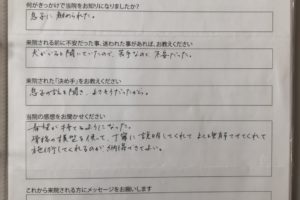 何がきっかけで当院をお知りになりましたか?
息子に勧められた。
来院される前に不安だった事、迷われた事があれば、お教えください
犬がいると聞いていたので、苦手なのに不安だった。
来院された「決め手」をお教えください
息子の話を聞き、よさそうだったから。
当院の感想をお聞かせください
希望が持てるようになった。
骨格の模型を使って、丁寧に説明してくれて、よくも理解できてくれて
施術してくれるのが納得できてよい。
これから来院される方にメッセージをお願いします